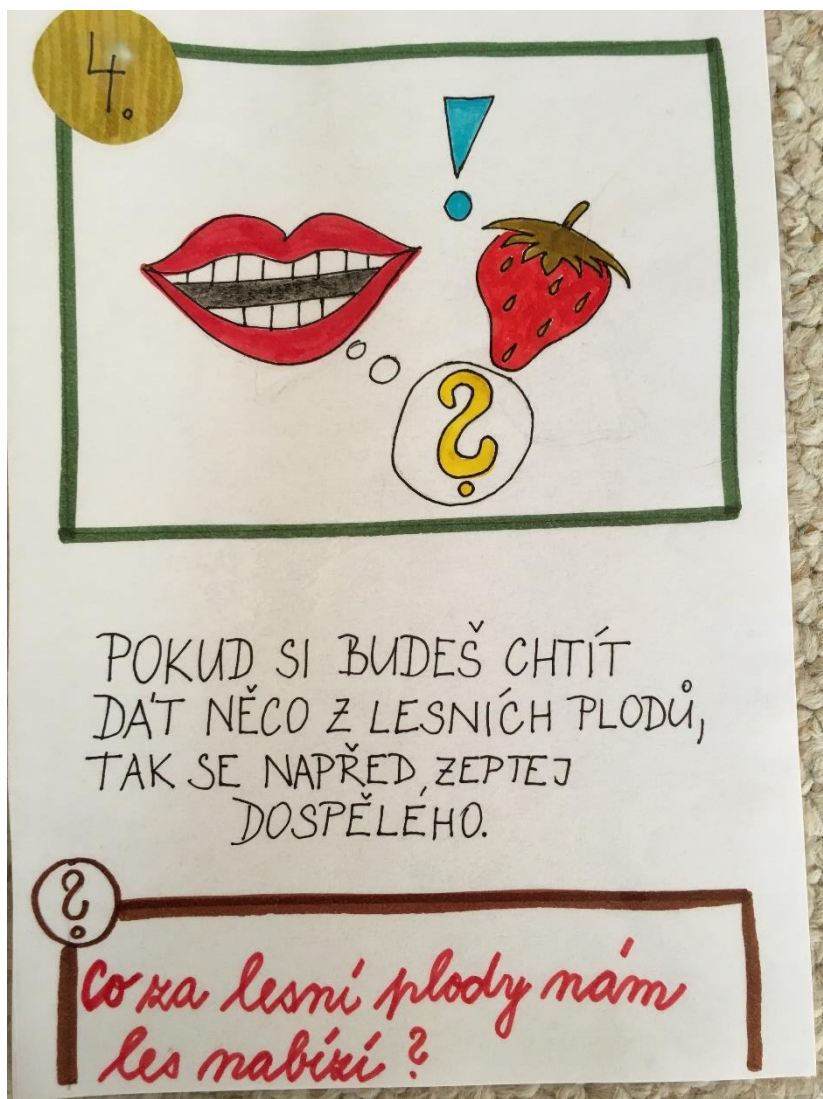 4.
!
?
POKUD SI BUDEŠ CHTÍT
DÁT NĚCO Z LESNÍCH PLODŮ,
TAK SE NAPŘED, ZEPTEJ
DOSPĚLÉHO.
?
Co za lesní plody nám
les nabízí?